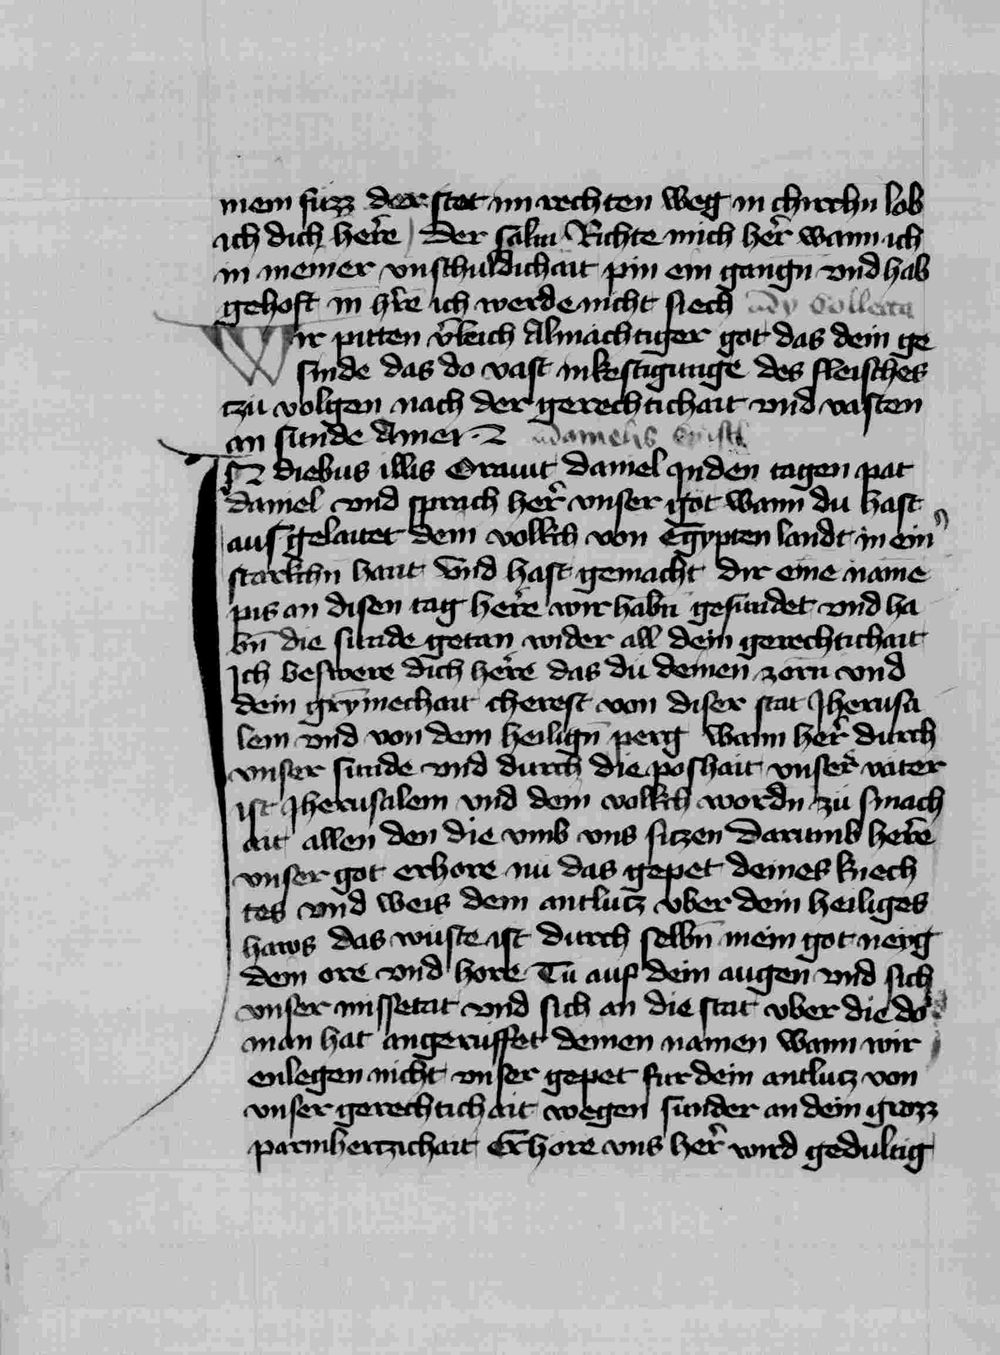 mein fuzz der stet im rechten weg in chirchn lob
ich dich here Der salm Richte mich her wann ich
in meiner vnschuldichait pin ein gangn vnd hab
gehoft in hre ich werde nicht siech Dy Collecta
Wir pitten verleich Almachtiger got das dein ge
sinde das do vast in kestigunge des fleisches
tzu volgen nach der gerechtichait vnd vasten
an sunde Amen danielis Epistel
IN diebus illis Orauit daniel In den tagen pat
daniel vnd sprach her vnser got wann du hast
aus gelaitet dein volkch von Egypten landt in ein
starkchn hant vnd hast gemacht dir eine name
pis an disen tag here wir habn gesundet vnd ha
bn die sunde getan wider all dein gerechtichait
Ich beswere dich here das du deinen zorn vnd
dein grymechait cherest von diser stat Jherusa
lem vnd von dem heilign perg wann her durch
vnser sunde vnd durch die poshait vnser vater
ist Jherusalem vnd dein volkch wordn zu smach
ait allen den die vmb vns sitzen Darumb here
vnser got erhore nu das gepet deines knech
tes vnd weis dein antlutz vber dein heiliges
haws das wuste ist durch selbn mein got neyg
dein ore vnd hore Tu auf dein augen vnd sich
vnser missetat vnd sich an die stat vber die do
man hat angeruffet deinen namen wann wir
enlegen nicht vnser gepet fur dein antlutz von
vnser gerechtichait wegen sunder an dein grozz
parmhertzichait Erhore vns her wird gedultig